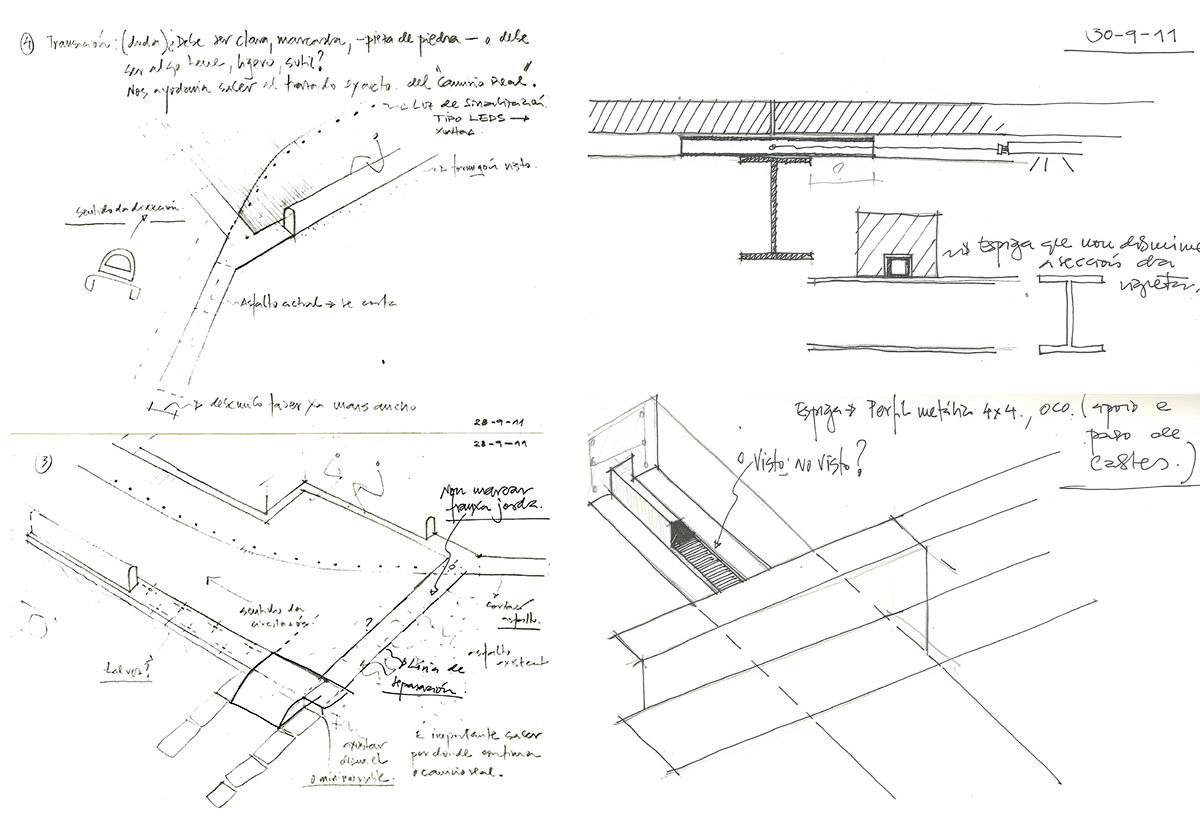 4 Transición: (duda) ¿Debe ser clara, marcada, -pieza de piedra- o debe
ser algo leve, ligero, sutil?
Nos ayudaría saber el trazado exacto del "Camino Real".
Luz de sinalización
TIPO LEDS →
xuntas
formigón visto.
sentido da dirección.
Asfalto actual → se corta
→ descuito facer xa mais ancho
28-9-11
28-9-11
3
Non marcar
franxa jorda.
sentido da
circulación
cortar
asfalto.
?
asfalto
existent
Tal vez?
Liña de
separación.
o mini
É importante saber
por donde continua
o camino real.
30-9-11
?
→ Espiga que non disminue
a sección da
vigueta.
Espiga → Perfil metálico 4x4., oco. (apoio e
paso de
cables.)
o Visto: No Visto?